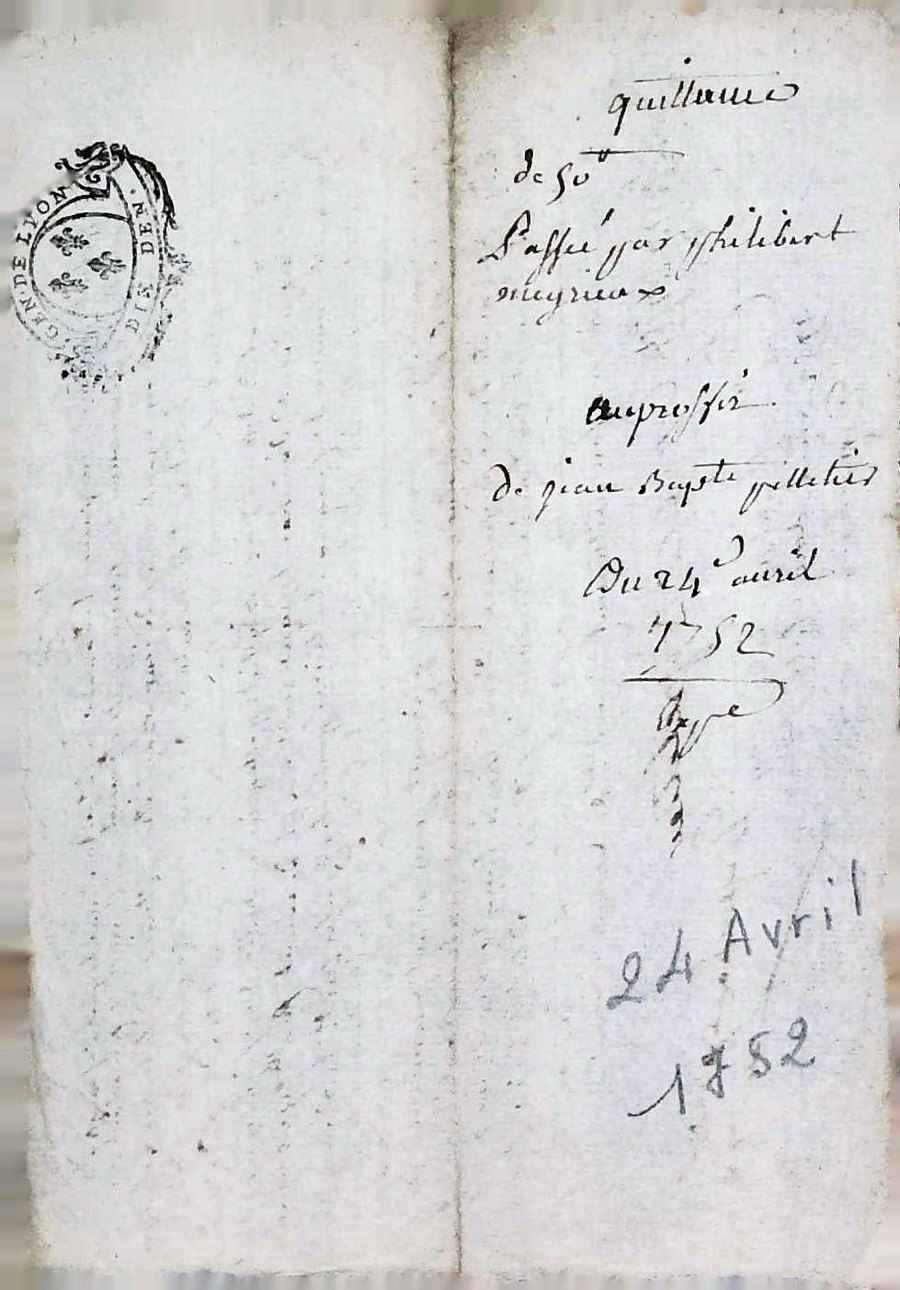 GEN. DE LYON
DIX DEN.
quittance
de 50ᵗᵗ
Passée par philibert
meyrieux
au proffit
de jean Bapte pelletier
Du 24e avril
1752
24 Avril
1752